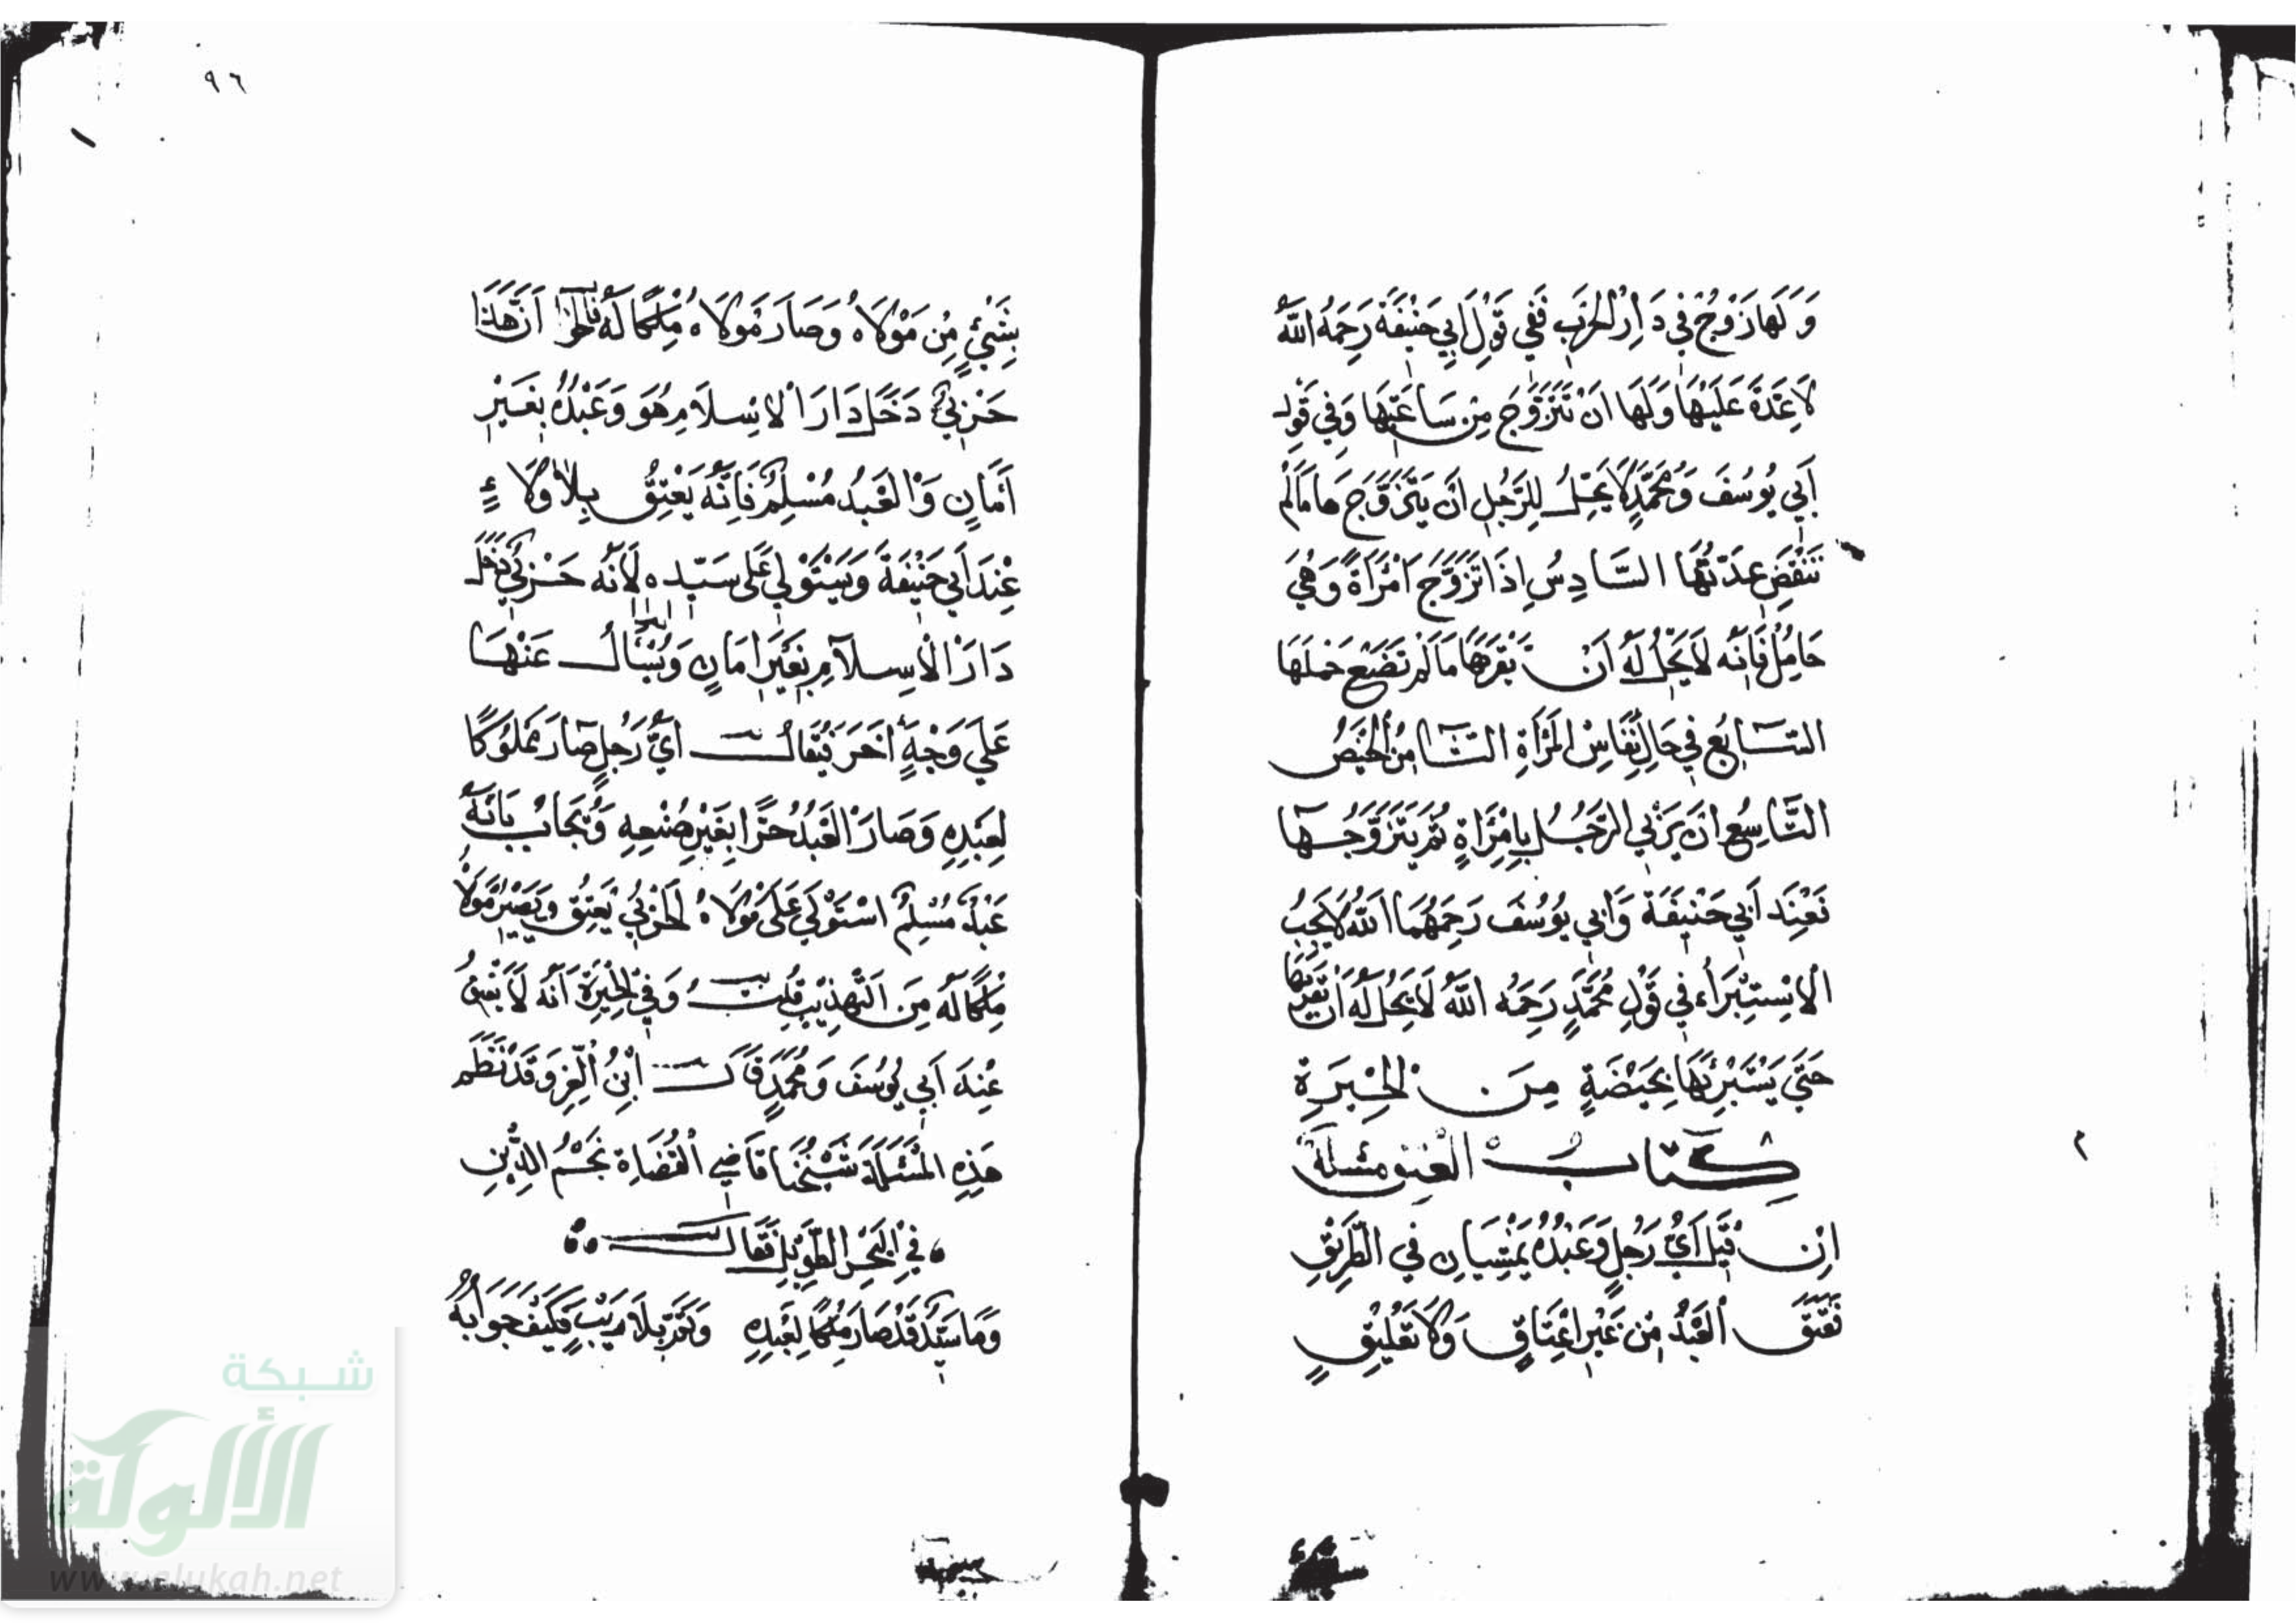 وَلَهَا زَوْجٌ فِي دَارِ الْحَرْبِ فَفِي قَوْلِ أَبِي حَنِيفَةَ رَحِمَهُ اللَّهُ
لَا عِدَّةَ عَلَيْهَا وَلَهَا أَنْ تَتَزَوَّجَ مِنْ سَاعَتِهَا وَفِي قَوْلِ
أَبِي يُوسُفَ وَمُحَمَّدٍ لَا يَحِلُّ لِلرَّجُلِ أَنْ يَتَزَوَّجَهَا مَا لَمْ
تَنْقَضِ عِدَّتُهَا السَّادِسُ إِذَا تَزَوَّجَ امْرَأَةً وَهِيَ
حَامِلٌ فَإِنَّهُ لَا يَحِلُّ لَهُ أَنْ يَقْرَبَهَا مَا لَمْ تَضَعْ حَمْلَهَا
السَّابِعُ فِي حَالِ نِفَاسِ الْمَرْأَةِ الثَّامِنُ الْحَيْضُ
التَّاسِعُ أَنْ يَزْنِيَ الرَّجُلُ بِامْرَأَةٍ ثُمَّ يَتَزَوَّجُهَا
فَعِنْدَ أَبِي حَنِيفَةَ وَأَبِي يُوسُفَ رَحِمَهُمَا اللَّهُ لَا يَجِبُ
الِاسْتِبْرَاءُ فِي قَوْلِ مُحَمَّدٍ رَحِمَهُ اللَّهُ لَا يَحِلُّ لَهُ أَنْ يَقْرَبَهَا
حَتَّى يَسْتَبْرِئَهَا بِحَيْضَةٍ مِنَ الْحِيرَةِ
كِتَابُ الْعِتْقِ مَسْئَلَةٌ
إِنْ قِيلَ أَيُّ رَجُلٍ وَعَبْدُهُ يَمْشِيَانِ فِي الطَّرِيقِ
فَعَتَقَ الْعَبْدُ مِنْ غَيْرِ إِعْتَاقٍ وَلَا تَعْلِيقٍ
٩٦
بِشَيْئٍ مِنْ مَوْلَاهُ وَصَارَ مَوْلَاهُ مِلْكًا لَهُ فَالْجَوَابُ أَنَّ هَذَا
حَرْبِيٌّ دَخَلَ دَارَ الْإِسْلَامِ هُوَ وَعَبْدُهُ بِغَيْرِ
أَمَانٍ وَالْعَبْدُ مُسْلِمٌ فَإِنَّهُ يَعْتِقُ بِلَا وَلَاءٍ
عِنْدَ أَبِي حَنِيفَةَ وَيَسْتَوْلِي عَلَى سَيِّدِهِ لِأَنَّهُ حَرْبِيٌّ دَخَلَ
دَارَ الْإِسْلَامِ بِغَيْرِ أَمَانٍ وَيُسْأَلُ عَنْهَا
عَلَى وَجْهٍ آخَرَ فَيُقَالُ أَيُّ رَجُلٍ صَارَ مَمْلُوكًا
لِعَبْدِهِ وَصَارَ الْعَبْدُ حُرًّا بِغَيْرِ صُنْعِهِ وَيُجَابُ بِأَنَّهُ
عَبْدٌ مُسْلِمٌ اسْتَوْلَى عَلَى مَوْلَاهُ الْحَرْبِيِّ يَعْتِقُ وَيَصِيرُ مَوْلَاهُ
مِلْكًا لَهُ مِنَ التَّهْذِيبِ قُلْتُ وَفِي الْحِيرَةِ أَنَّهُ لَا يَعْتِقُ
عِنْدَ أَبِي يُوسُفَ وَمُحَمَّدٍ قَالَ ابْنُ الْعِزِّ وَقَدْ نَظَمَ
هَذِهِ الْمَسْئَلَةَ شَيْخُنَا قَاضِي الْقُضَاةِ نَجْمُ الدِّينِ
فِي الْبَحْرِ الطَّوِيلِ فَقَالَ
وَمَا سَيِّدٌ قَدْ صَارَ مِلْكًا لِعَبْدِهِ وَكَفَّرَ بِلَا رَيْبٍ فَكَيْفَ جَوَابُهُ
شبكة
الألوكة
www.alukah.net